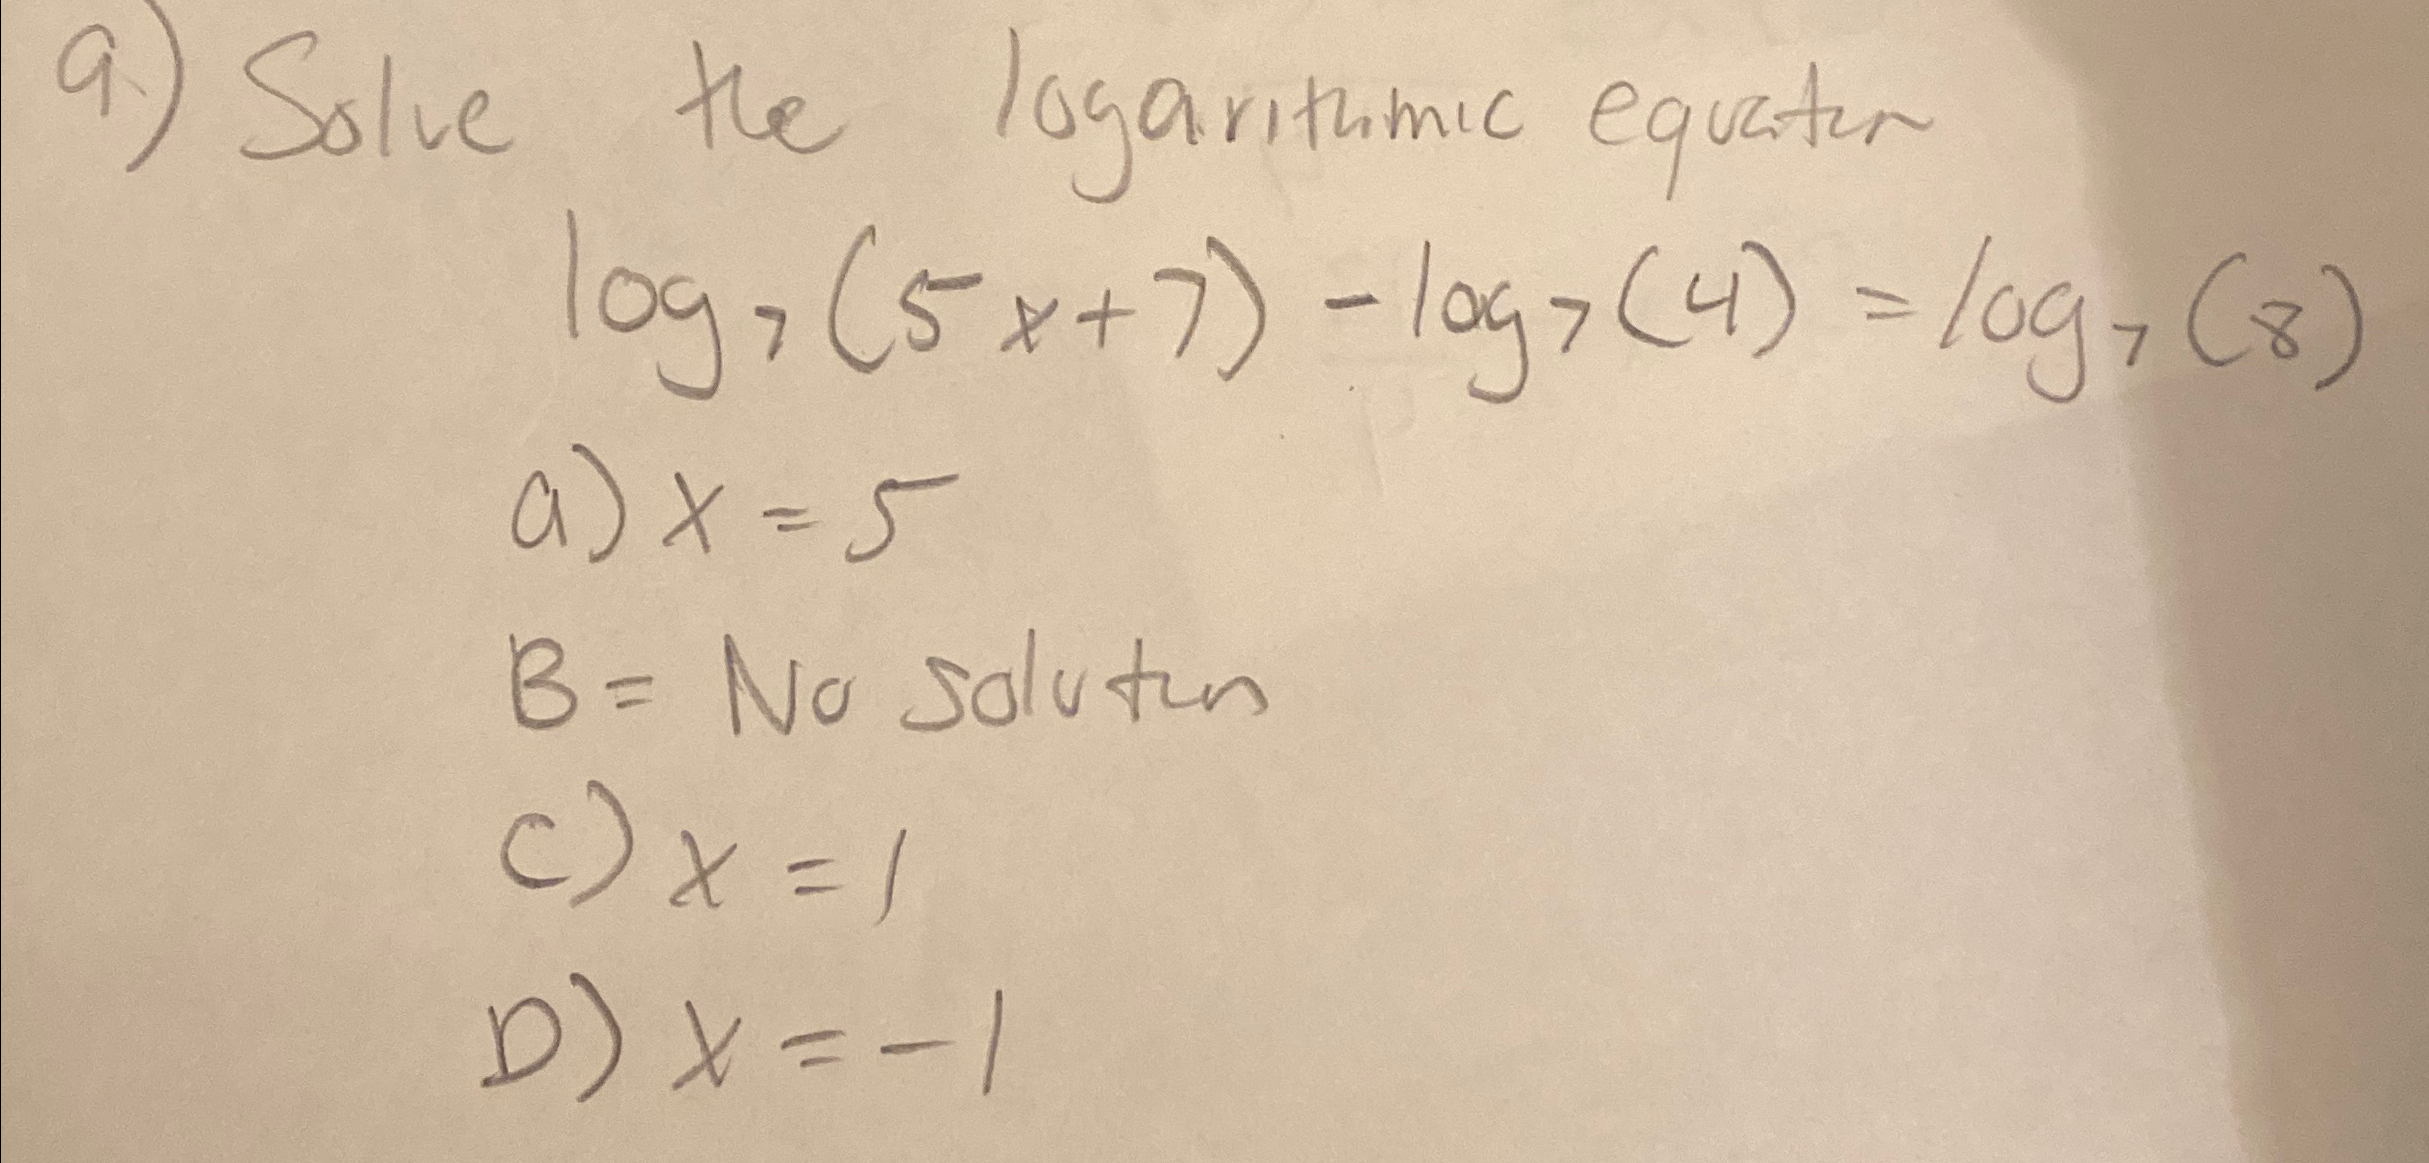 9.) Solve the logarithmic equation
log₇(5x+7) - log₇(4) = log₇(8)
a) x = 5
B = No solution
C) x = 1
D) x = -1